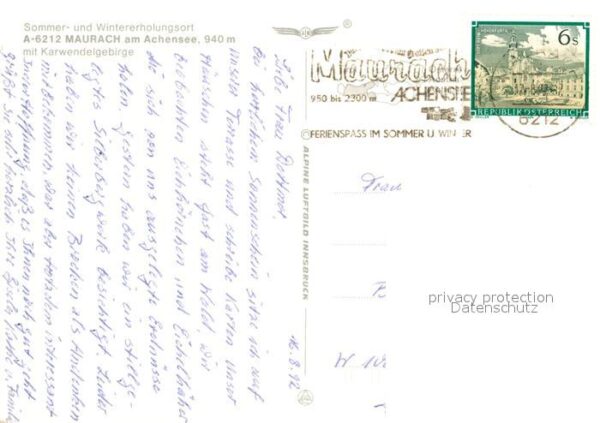 Sommer- und Wintererholungsort
A-6212 MAURACH am Achensee, 940 m
mit Karwendelgebirge
Maurach
950 bis 2300 m ACHENSEE
FERIENSPASS IM SOMMER U. WINTER
6212
6 S
REPUBLIK ÖSTERREICH
ALPINE LUFTBILD INNSBRUCK
16.8.92
Liebe Frau
bei herrlichem Sonnenschein sitze ich auf
unserer Terrasse und schreibe Karten. Unser
Häuschen steht fast am Wald, wir
Eichhörnchen und Eichelhäher
die sich von uns ausgelegte Erdnüsse
holen. Gestern haben wir ein stillge-
Silberbergwerk besichtigt. Leider
hab' wir keinen Brocken als Andenken
mitbekommen, war aber trotzdem interessant
Hoffnung, daß es Ihnen noch gut geht
grüßt Sie sehr herzlich Ihre
Frau
privacy protection
Datenschutz